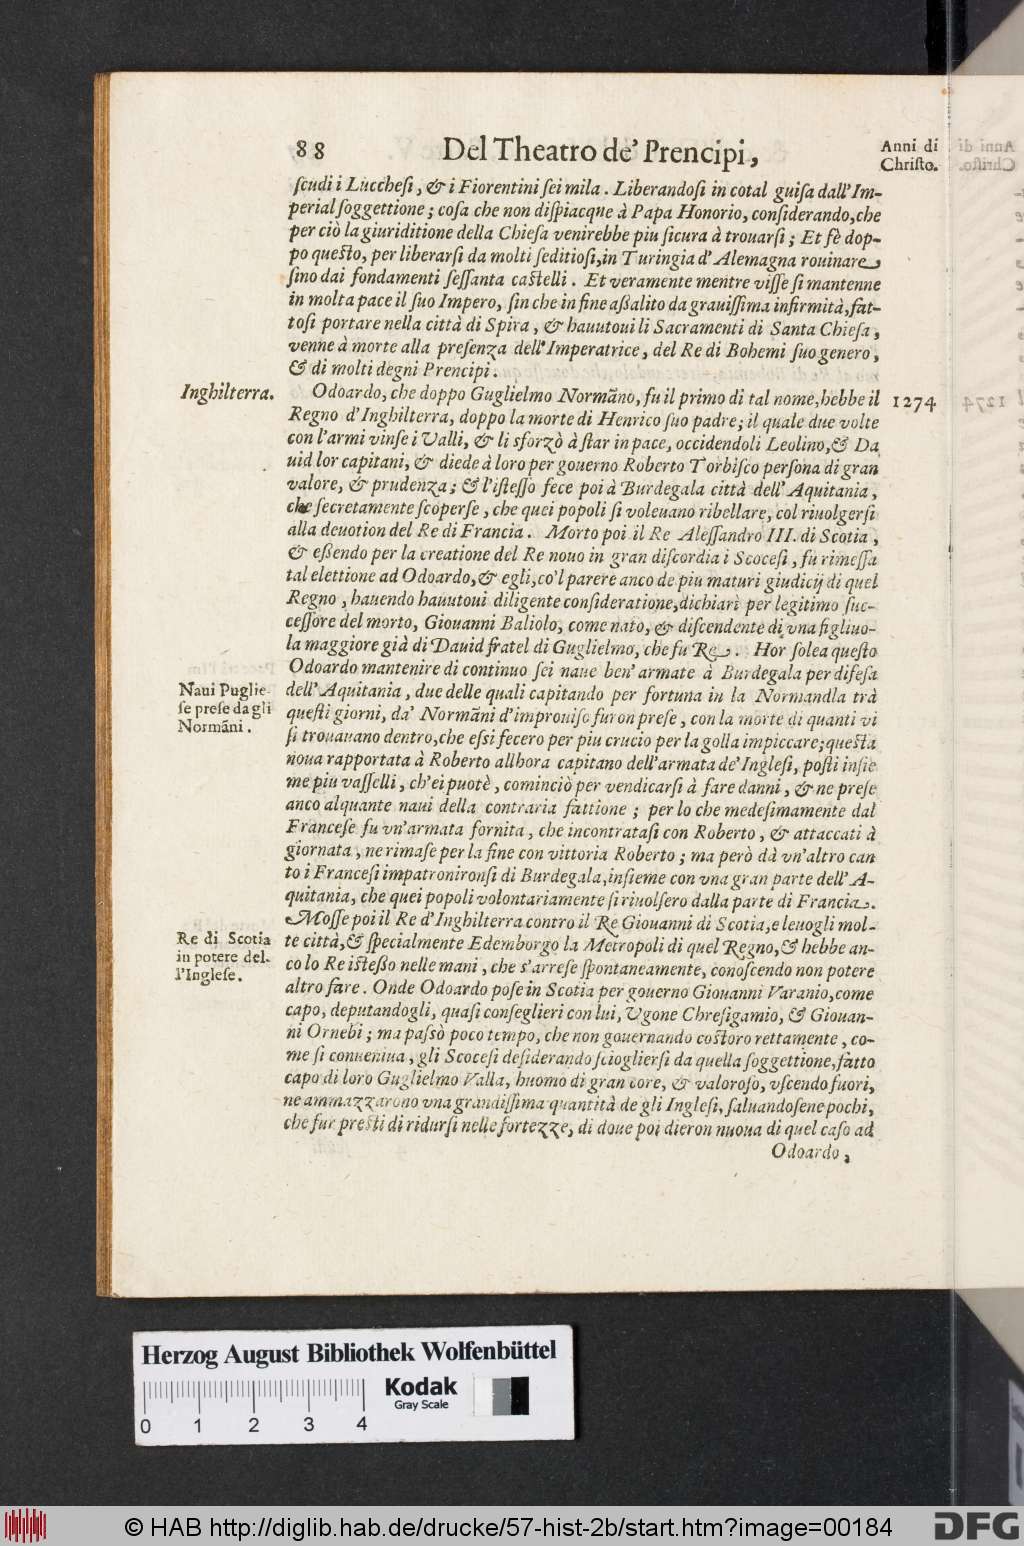 88 Del Theatro de' Prencipi, Anni di
Chriſto.
ſcudi i Luccheſi, & i Fiorentini ſei mila. Liberandoſi in cotal guiſa dall'Im-
perial ſoggettione; coſa che non diſpiacque à Papa Honorio, conſiderando, che
per ciò la giuriditione della Chieſa venirebbe piu ſicura à trouarſi; Et fè dop-
po queſto, per liberarſi da molti ſeditioſi, in Turingia d'Alemagna rouinare
ſino dai fondamenti ſeſſanta caſtelli. Et veramente mentre viſſe ſi mantenne
in molta pace il ſuo Impero, ſin che in fine aſſalito da grauiſſima infirmità, fat-
toſi portare nella città di Spira, & hauutoui li Sacramenti di Santa Chieſa,
venne à morte alla preſenza dell'Imperatrice, del Re di Bohemi ſuo genero,
& di molti degni Prencipi.
Inghilterra.
Odoardo, che doppo Guglielmo Normãno, fu il primo di tal nome, hebbe il 1274
Regno d'Inghilterra, doppo la morte di Henrico ſuo padre; il quale due volte
con l'armi vinſe i Valli, & li sforzò à ſtar in pace, occidendoli Leolino, & Da
uid lor capitani, & diede à loro per gouerno Roberto Torbiſco perſona di gran
valore, & prudenza; & l'iſteſſo fece poi à Burdegala città dell'Aquitania,
che ſecretamente ſcoperſe, che quei popoli ſi voleuano ribellare, col riuolgerſi
alla deuotion del Re di Francia. Morto poi il Re Aleſſandro III. di Scotia,
& eſſendo per la creatione del Re nouo in gran diſcordia i Scoceſi, fu rimeſſa
tal elettione ad Odoardo, & egli, co'l parere anco de piu maturi giudicij di quel
Regno, hauendo hauutoui diligente conſideratione, dichiarì per legitimo ſuc-
ceſſore del morto, Giouanni Baliolo, come nato, & diſcendente di vna figliuo-
la maggiore già di Dauid fratel di Guglielmo, che fu Re. Hor ſolea queſto
Odoardo mantenire di continuo ſei naue ben'armate à Burdegala per difeſa
Naui Puglie-
ſe preſe da gli
Normãni.
dell'Aquitania, due delle quali capitando per fortuna in la Normandla trà
queſti giorni, da' Normãni d'improuiſo furon preſe, con la morte di quanti vi
ſi trouauano dentro, che eſsi fecero per piu crucio per la golla impiccare; queſta
noua rapportata à Roberto allhora capitano dell'armata de'Ingleſi, poſti inſie
me piu vaſſelli, ch'ei puotè, cominciò per vendicarſi à fare danni, & ne preſe
anco alquante naui della contraria fattione; per lo che medeſimamente dal
Franceſe fu vn'armata fornita, che incontrataſi con Roberto, & attaccati à
giornata, ne rimaſe per la fine con vittoria Roberto; ma però dà vn'altro can
to i Franceſi impatronironſi di Burdegala, inſieme con vna gran parte dell'A-
quitania, che quei popoli volontariamente ſi riuolſero dalla parte di Francia.
Moſſe poi il Re d'Inghilterra contro il Re Giouanni di Scotia, e leuogli mol-
Re di Scotia
in potere del-
l'Ingleſe.
te città, & ſpecialmente Edemborgo la Metropoli di quel Regno, & hebbe an-
co lo Re iſteſſo nelle mani, che s'arreſe ſpontaneamente, conoſcendo non potere
altro fare. Onde Odoardo poſe in Scotia per gouerno Giouanni Varanio, come
capo, deputandogli, quaſi conſeglieri con lui, Vgone Chreſigamio, & Giouan-
ni Ornebi; ma paſsò poco tempo, che non gouernando coſtoro rettamente, co-
me ſi conueniua, gli Scoceſi deſiderando ſcioglierſi da quella ſoggettione, fatto
capo di loro Guglielmo Valla, huomo di gran core, & valoroſo, vſcendo fuori,
ne ammazzarono vna grandiſſima quantità de gli Ingleſi, ſaluandoſene pochi,
che fur preſti di ridurſi nelle fortezze, di doue poi dieron nuoua di quel caſo ad
Odoardo,
Herzog August Bibliothek Wolfenbüttel
Kodak
Gray Scale
0 1 2 3 4
© HAB http://diglib.hab.de/drucke/57-hist-2b/start.htm?image=00184
DFG